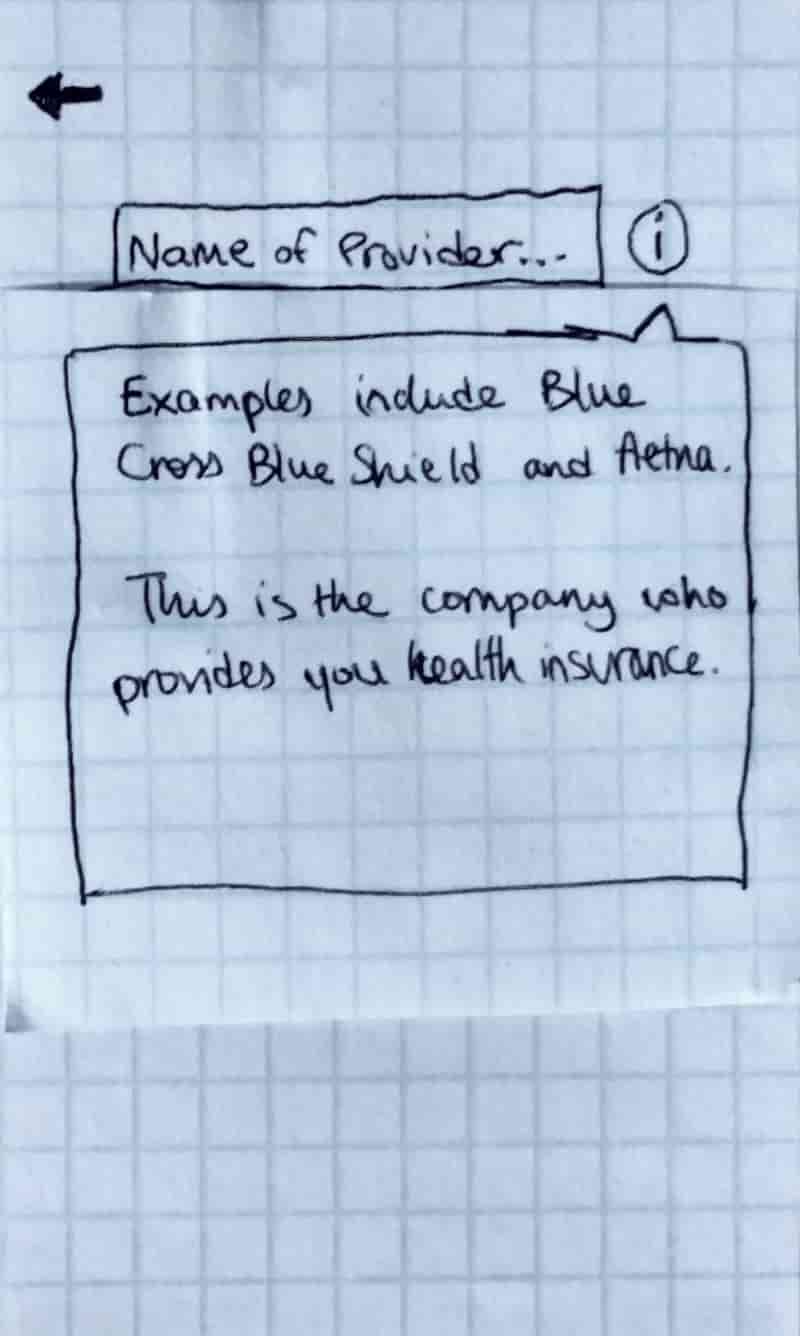 Name of Provider...
i
Examples include Blue
Cross Blue Shield and Aetna.
This is the company who
provides you health insurance.